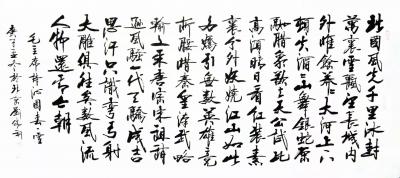 北國風光千里冰封
萬里雪飄望長城内
外唯餘莽莽大河上下
頓失滔滔山舞銀蛇原
馳腊象欲与天公試比
高須晴日看红装素
裹分外妖娆江山如此
多嬌引無數英雄竞
折腰惜秦皇漢武略
输文采唐宗宋祖稍
逊風騷一代天驕成吉
思汗只識彎弓射
大雕俱往矣數風流
人物還看今朝
毛主席詞沁園春雪